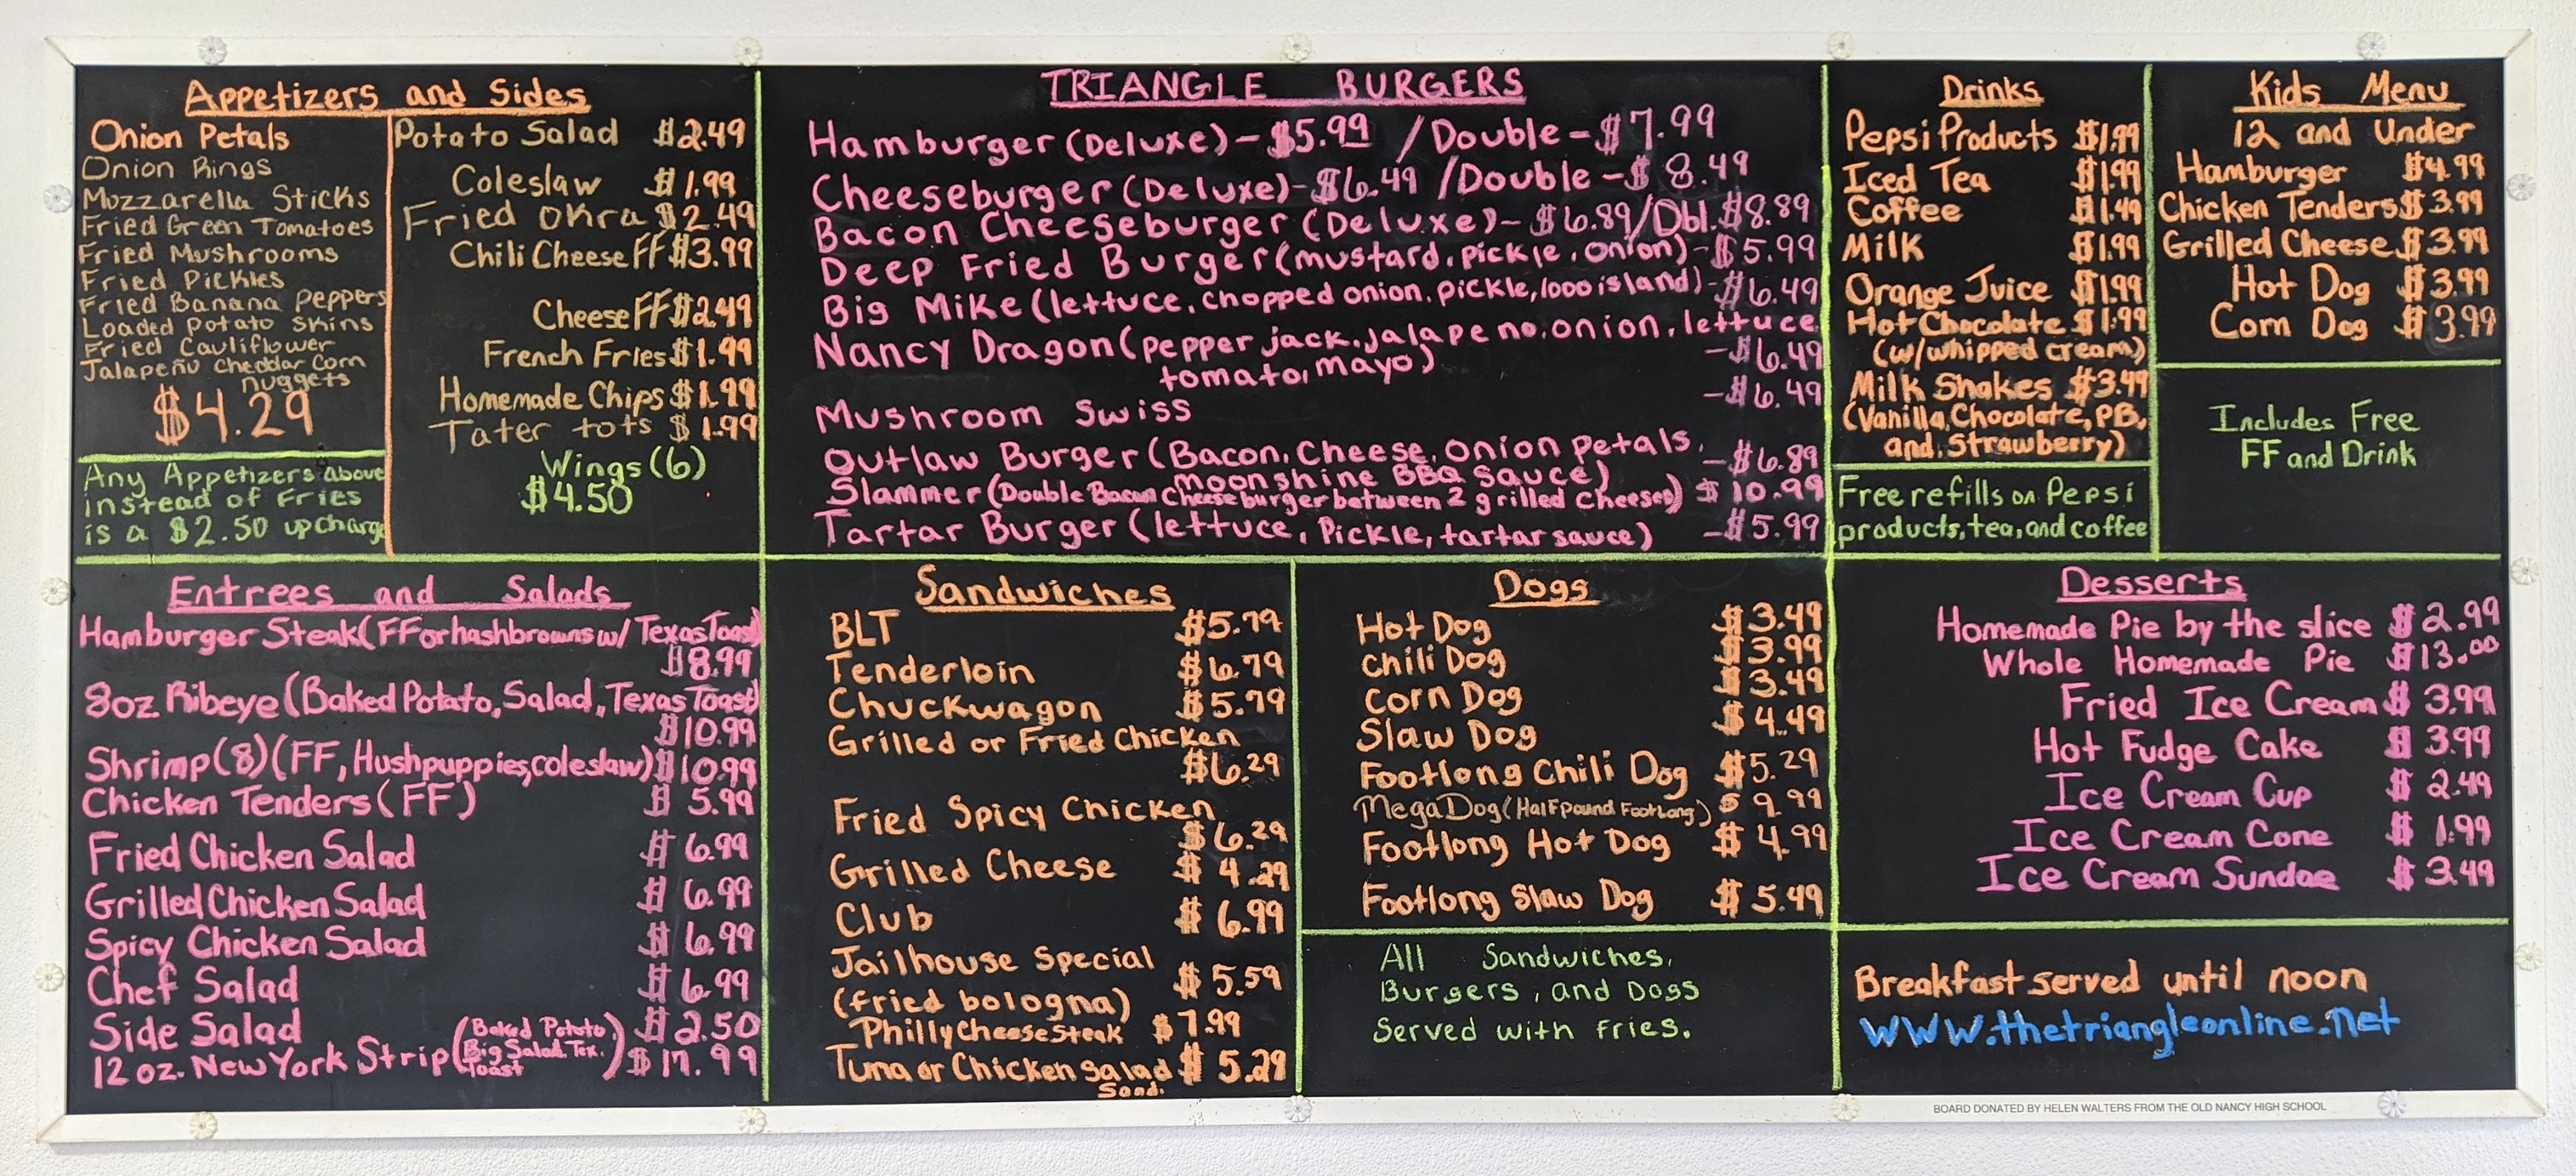 Appetizers and Sides
Onion Petals
Onion Rings
Mozzarella Sticks
Fried Green Tomatoes
Fried Mushrooms
Fried Pickles
Fried Banana Peppers
Loaded Potato Skins
Fried Cauliflower
Jalapeño Cheddar Corn
nuggets
$4.29
Any Appetizers above
instead of Fries
is a $2.50 upcharge
Potato Salad $2.49
Coleslaw $1.99
Fried Okra $2.49
Chili Cheese FF $3.99
Cheese FF $2.49
French Fries $1.99
Homemade Chips $1.99
Tater tots $1.99
Wings (6)
$4.50
TRIANGLE BURGERS
Hamburger (Deluxe) - $5.99 / Double - $7.99
Cheeseburger (Deluxe) - $6.49 / Double - $8.49
Bacon Cheeseburger (Deluxe) - $6.89/Dbl. $8.89
Deep Fried Burger (mustard, pickle, onion) - $5.99
Big Mike (lettuce, chopped onion, pickle, 1000 island) - $6.49
Nancy Dragon (pepper jack, jalapeno, onion, lettuce
tomato, mayo) - $6.49
Mushroom Swiss - $6.49
Outlaw Burger (Bacon, Cheese, onion petals,
moonshine BBQ sauce) - $6.89
Slammer (Double Bacon Cheeseburger between 2 grilled Cheeses) $10.99
Tartar Burger (lettuce, Pickle, tartar sauce) - $5.99
Drinks
Pepsi Products $1.99
Iced Tea $1.99
Coffee $1.49
Milk $1.99
Orange Juice $1.99
Hot Chocolate $1.99
(w/whipped cream)
Milk Shakes $3.49
(Vanilla, Chocolate, PB,
and, Strawberry)
Free refills on Pepsi
products, tea, and coffee
Kids Menu
12 and Under
Hamburger $4.99
Chicken Tenders $3.99
Grilled Cheese $3.99
Hot Dog $3.99
Corn Dog $3.99
Includes Free
FF and Drink
Entrees and Salads
Hamburger Steak (FF or hashbrowns w/ Texas Toast)
$8.99
8oz. Ribeye (Baked Potato, Salad, Texas Toast)
$10.99
Shrimp (8) (FF, Hushpuppies, coleslaw) $10.99
Chicken Tenders (FF) $5.99
Fried Chicken Salad $6.99
Grilled Chicken Salad $6.99
Spicy Chicken Salad $6.99
Chef Salad $6.99
Side Salad $2.50
12 oz. New York Strip (Baked Potato, Big Salad, Tex. Toast) $17.99
Sandwiches
BLT $5.79
Tenderloin $6.79
Chuckwagon $5.79
Grilled or Fried Chicken
$6.29
Fried Spicy Chicken
$6.29
Grilled Cheese $4.29
Club $6.99
Jailhouse Special
(fried bologna) $5.59
Philly Cheese Steak $7.99
Tuna or Chicken Salad $5.29
Sand.
Dogs
Hot Dog $3.49
Chili Dog $3.99
Corn Dog $3.49
Slaw Dog $4.49
Footlong Chili Dog $5.29
Mega Dog (Half pound Footlong) $9.99
Footlong Hot Dog $4.99
Footlong Slaw Dog $5.49
All Sandwiches,
Burgers, and Dogs
Served with fries.
Desserts
Homemade Pie by the slice $2.99
Whole Homemade Pie $13.00
Fried Ice Cream $3.99
Hot Fudge Cake $3.99
Ice Cream Cup $2.49
Ice Cream Cone $1.99
Ice Cream Sundae $3.49
Breakfast served until noon
www.thetriangleonline.net
BOARD DONATED BY HELEN WALTERS FROM THE OLD NANCY HIGH SCHOOL